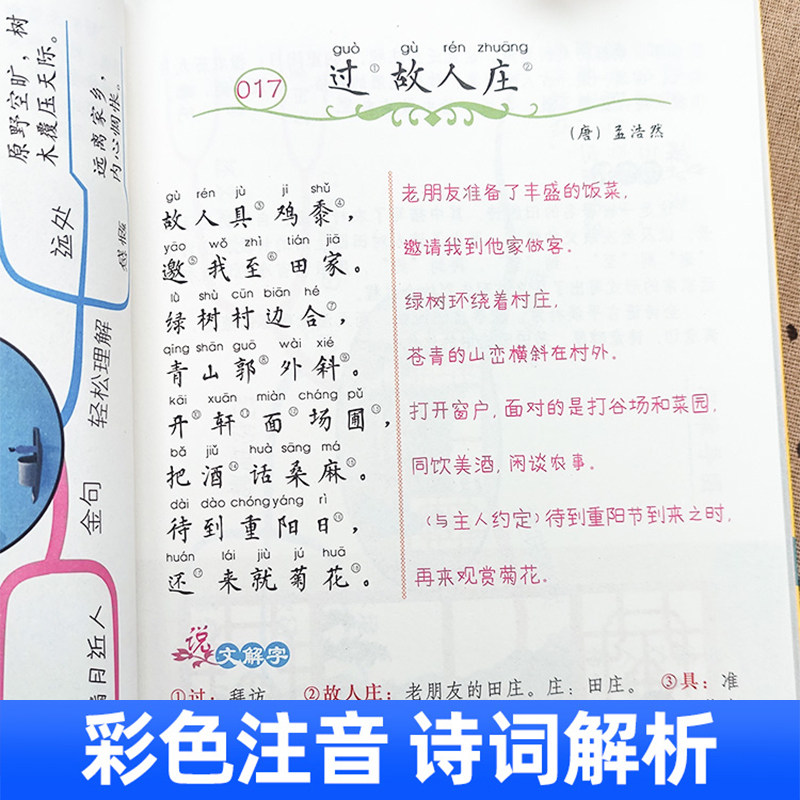 原野空旷，树
木覆压天际。
远离家乡，
内心惆怅。
远处
轻松理解
金句
月近人
017
guò gù rén zhuāng
过①故人庄②
（唐）孟浩然
gù rén jù jī shǔ
故人具③鸡黍④，
yāo wǒ zhì tián jiā
邀⑤我至⑥田家。
lǜ shù cūn biān hé
绿树村边合⑦，
qīng shān guō wài xié
青山郭⑧外斜⑨。
kāi xuān miàn cháng pǔ
开⑩轩⑪面⑫场圃⑬，
bǎ jiǔ huà sāng má
把酒⑭话桑麻。
dài dào chóng yáng rì
待到重阳日⑮，
huán lái jiù jú huā
还⑯来就菊花⑰。
老朋友准备了丰盛的饭菜，
邀请我到他家做客。
绿树环绕着村庄，
苍青的山峦横斜在村外。
打开窗户，面对的是打谷场和菜园，
同饮美酒，闲谈农事。
（与主人约定）待到重阳节到来之时，
再来观赏菊花。
说文解字
①过：拜访 ②故人庄：老朋友的田庄。庄：田庄。 ③具：准
彩色注音 诗词解析